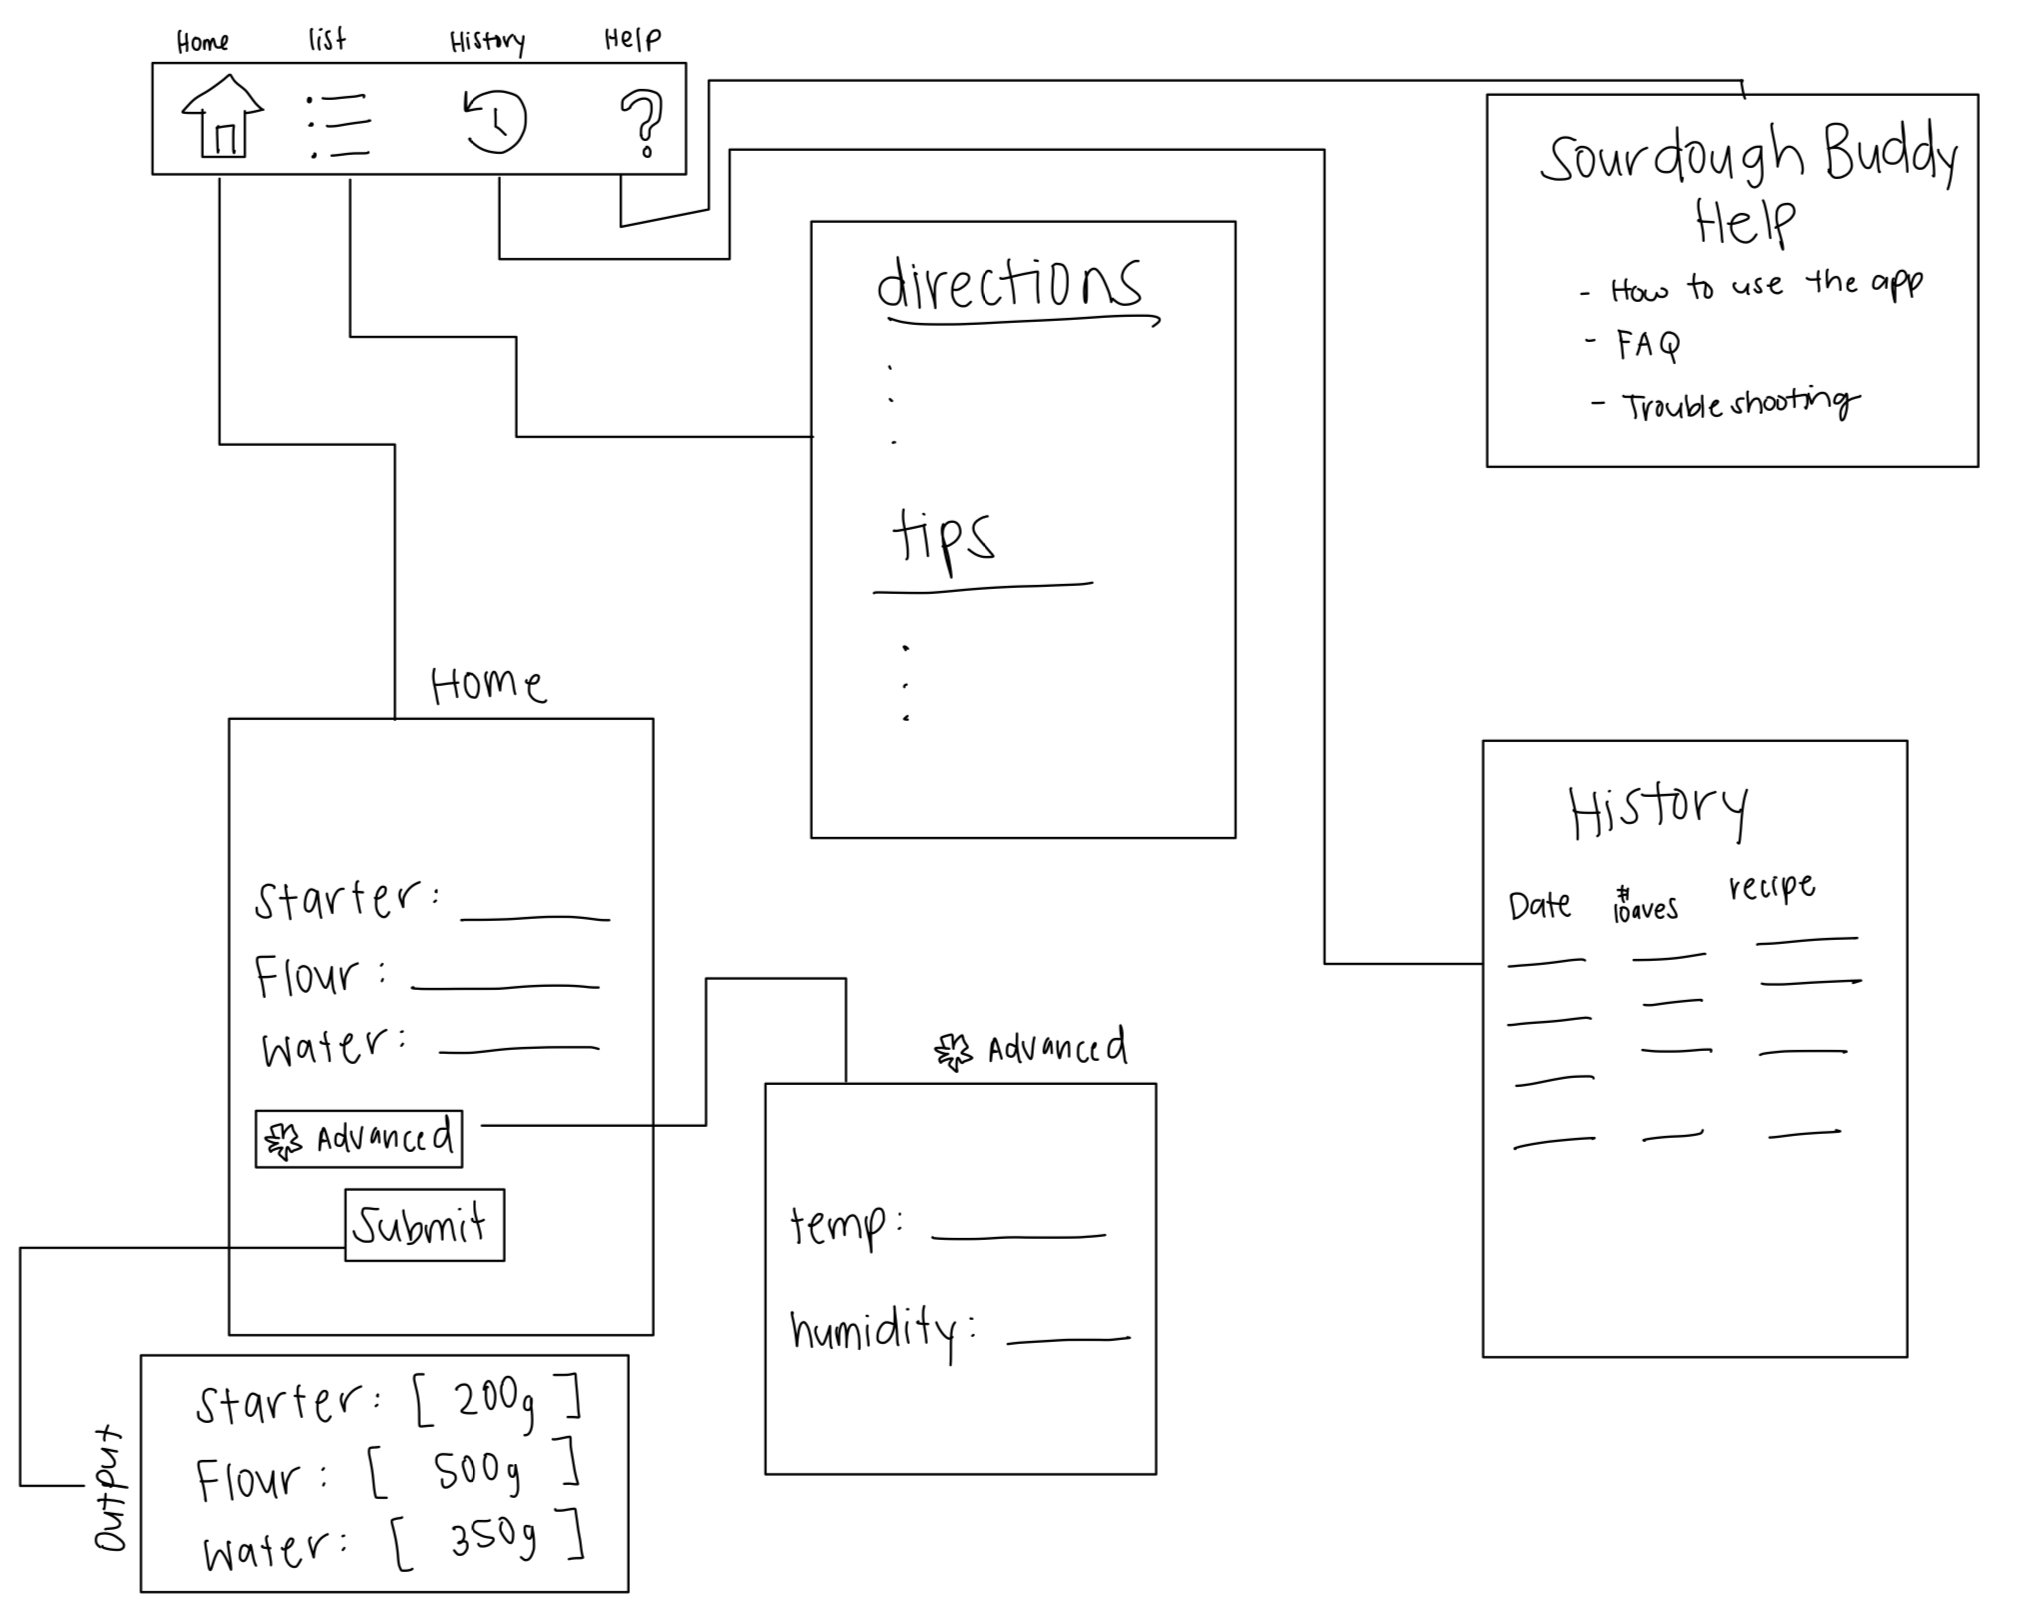 Home list History Help
Sourdough Buddy
Help
- How to use the app
- FAQ
- Troubleshooting
directions
tips
Home
Starter:
Flour:
Water:
Advanced
Submit
Advanced
temp:
humidity:
History
Date # loaves recipe
Output
Starter: [ 200g ]
Flour: [ 500g ]
Water: [ 350g ]